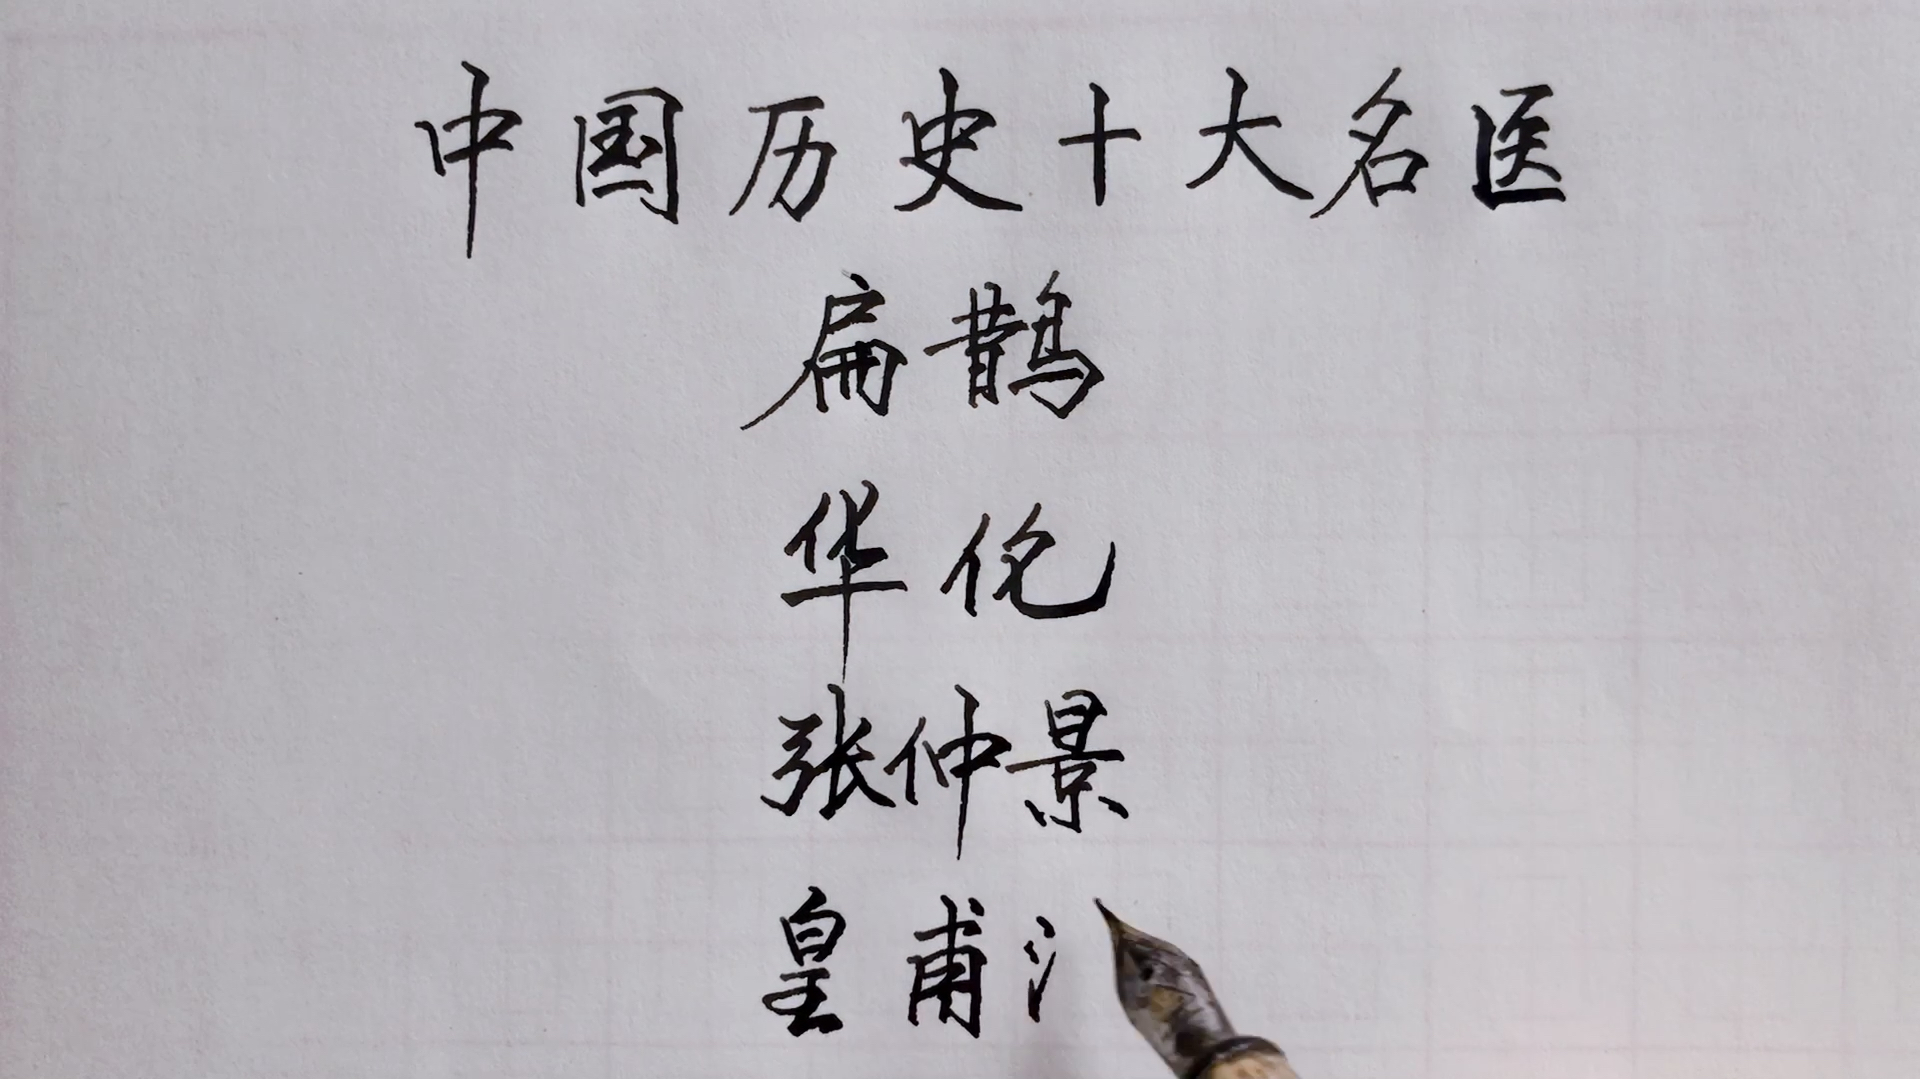 中国历史十大名医
扁鹊
华佗
张仲景
皇甫